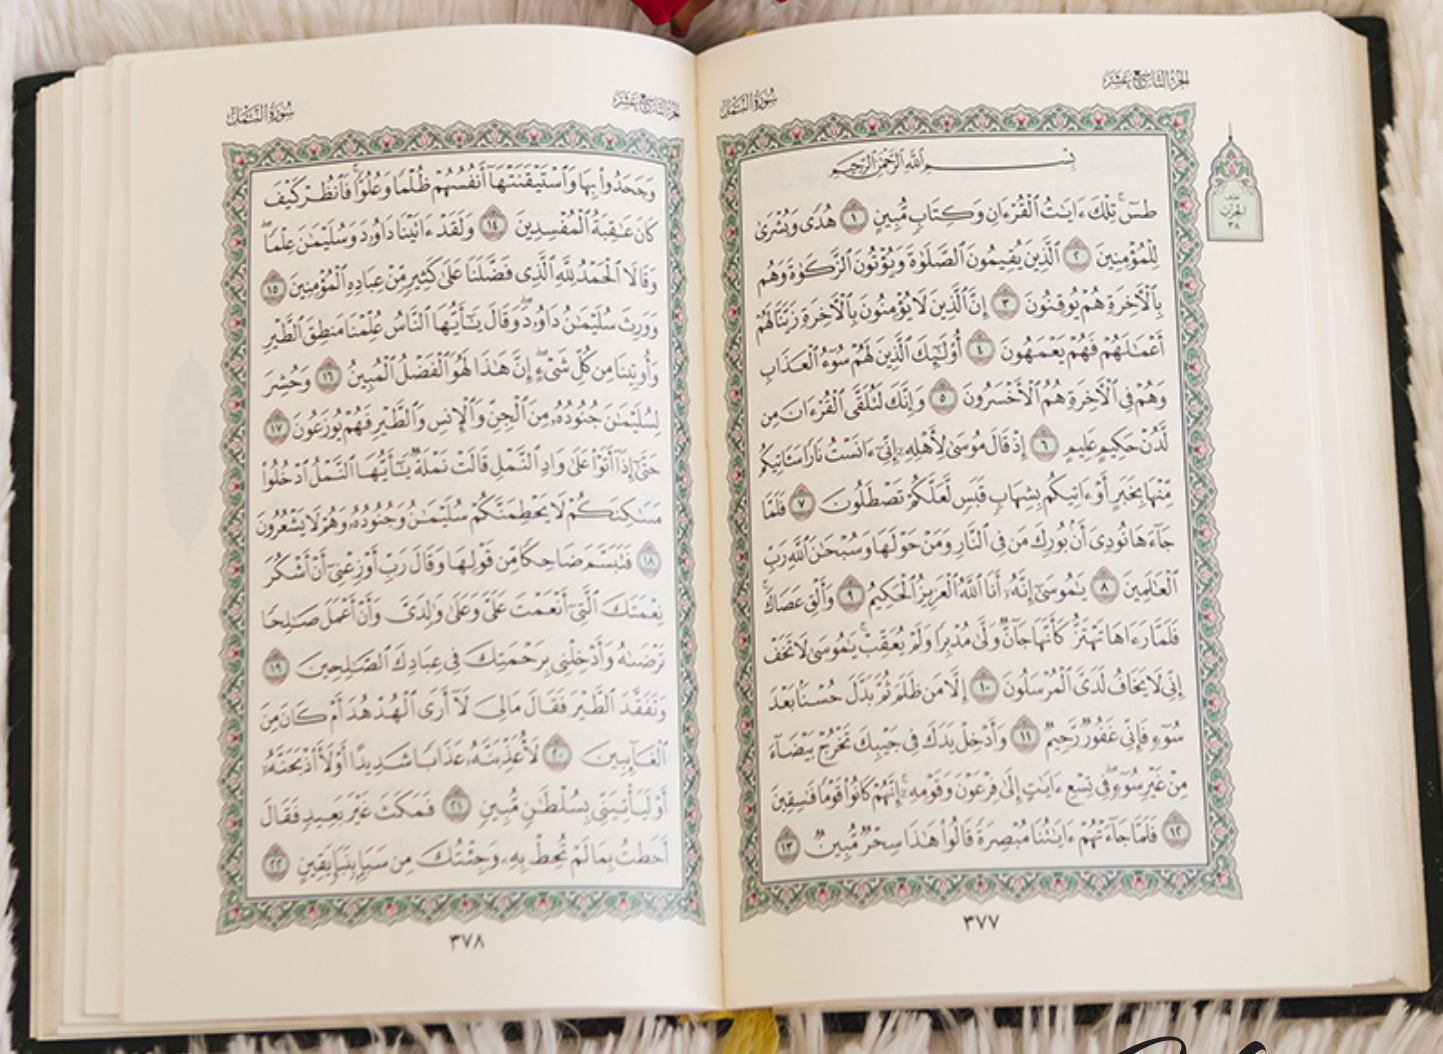 الجزء التاسع عشر
سورة النمل
بِسْمِ ٱللَّهِ ٱلرَّحْمَٰنِ ٱلرَّحِيمِ
طسٓۚ تِلْكَ ءَايَٰتُ ٱلْقُرْءَانِ وَكِتَابٍ مُّبِينٍ ١ هُدًى وَبُشْرَىٰ
لِلْمُؤْمِنِينَ ٢ ٱلَّذِينَ يُقِيمُونَ ٱلصَّلَوٰةَ وَيُؤْتُونَ ٱلزَّكَوٰةَ وَهُم
بِٱلْأَخِرَةِ هُمْ يُوقِنُونَ ٣ إِنَّ ٱلَّذِينَ لَا يُؤْمِنُونَ بِٱلْأَخِرَةِ زَيَّنَّا لَهُمْ
أَعْمَٰلَهُمْ فَهُمْ يَعْمَهُونَ ٤ أُوْلَٰٓئِكَ ٱلَّذِينَ لَهُمْ سُوٓءُ ٱلْعَذَابِ
وَهُمْ فِي ٱلْأَخِرَةِ هُمُ ٱلْأَخْسَرُونَ ٥ وَإِنَّكَ لَتُلَقَّى ٱلْقُرْءَانَ مِن
لَّدُنْ حَكِيمٍ عَلِيمٍ ٦ إِذْ قَالَ مُوسَىٰ لِأَهْلِهِۦٓ إِنِّيٓ ءَانَسْتُ نَارًا سَـَٔاتِيكُم
مِّنْهَا بِخَبَرٍ أَوْ ءَاتِيكُم بِشِهَابٍ قَبَسٍ لَّعَلَّكُمْ تَصْطَلُونَ ٧ فَلَمَّا
جَآءَهَا نُودِيَ أَنۢ بُورِكَ مَن فِي ٱلنَّارِ وَمَنْ حَوْلَهَا وَسُبْحَٰنَ ٱللَّهِ رَبِّ
ٱلْعَٰلَمِينَ ٨ يَٰمُوسَىٰٓ إِنَّهُۥٓ أَنَا ٱللَّهُ ٱلْعَزِيزُ ٱلْحَكِيمُ ٩ وَأَلْقِ عَصَاكَۚ
فَلَمَّا رَءَاهَا تَهْتَزُّ كَأَنَّهَا جَآنٌّ وَلَّىٰ مُدْبِرًا وَلَمْ يُعَقِّبْۚ يَٰمُوسَىٰ لَا تَخَفْ
إِنِّي لَا يَخَافُ لَدَيَّ ٱلْمُرْسَلُونَ ١٠ إِلَّا مَن ظَلَمَ ثُمَّ بَدَّلَ حُسْنًۢا بَعْدَ
سُوٓءٍ فَإِنِّي غَفُورٌ رَّحِيمٌ ١١ وَأَدْخِلْ يَدَكَ فِي جَيْبِكَ تَخْرُجْ بَيْضَآءَ
مِنْ غَيْرِ سُوٓءٍۖ فِي تِسْعِ ءَايَٰتٍ إِلَىٰ فِرْعَوْنَ وَقَوْمِهِۦٓۚ إِنَّهُمْ كَانُوا۟ قَوْمًا فَٰسِقِينَ
١٢ فَلَمَّا جَآءَتْهُمْ ءَايَٰتُنَا مُبْصِرَةً قَالُوا۟ هَٰذَا سِحْرٌ مُّبِينٌ ١٣
٣٧٧
الحزب
٣٨
الجزء التاسع عشر
سورة النمل
وَجَحَدُوا۟ بِهَا وَٱسْتَيْقَنَتْهَآ أَنفُسُهُمْ ظُلْمًا وَعُلُوًّاۚ فَٱنظُرْ كَيْفَ
كَانَ عَٰقِبَةُ ٱلْمُفْسِدِينَ ١٤ وَلَقَدْ ءَاتَيْنَا دَاوُۥدَ وَسُلَيْمَٰنَ عِلْمًاۖ
وَقَالَا ٱلْحَمْدُ لِلَّهِ ٱلَّذِي فَضَّلَنَا عَلَىٰ كَثِيرٍ مِّنْ عِبَادِهِ ٱلْمُؤْمِنِينَ ١٥
وَوَرِثَ سُلَيْمَٰنُ دَاوُۥدَۖ وَقَالَ يَٰٓأَيُّهَا ٱلنَّاسُ عُلِّمْنَا مَنطِقَ ٱلطَّيْرِ
وَأُوتِينَا مِن كُلِّ شَيْءٍۖ إِنَّ هَٰذَا لَهُوَ ٱلْفَضْلُ ٱلْمُبِينُ ١٦ وَحُشِرَ
لِسُلَيْمَٰنَ جُنُودُهُۥ مِنَ ٱلْجِنِّ وَٱلْإِنسِ وَٱلطَّيْرِ فَهُمْ يُوزَعُونَ ١٧
حَتَّىٰٓ إِذَآ أَتَوْا۟ عَلَىٰ وَادِ ٱلنَّمْلِ قَالَتْ نَمْلَةٌ يَٰٓأَيُّهَا ٱلنَّمْلُ ٱدْخُلُوا۟
مَسَٰكِنَكُمْ لَا يَحْطِمَنَّكُمْ سُلَيْمَٰنُ وَجُنُودُهُۥ وَهُمْ لَا يَشْعُرُونَ
١٨ فَتَبَسَّمَ ضَاحِكًا مِّن قَوْلِهَا وَقَالَ رَبِّ أَوْزِعْنِيٓ أَنْ أَشْكُرَ
نِعْمَتَكَ ٱلَّتِيٓ أَنْعَمْتَ عَلَيَّ وَعَلَىٰ وَٰلِدَيَّ وَأَنْ أَعْمَلَ صَٰلِحًا
تَرْضَىٰهُ وَأَدْخِلْنِي بِرَحْمَتِكَ فِي عِبَادِكَ ٱلصَّٰلِحِينَ ١٩
وَتَفَقَّدَ ٱلطَّيْرَ فَقَالَ مَالِيَ لَآ أَرَى ٱلْهُدْهُدَ أَمْ كَانَ مِنَ
ٱلْغَآئِبِينَ ٢٠ لَأُعَذِّبَنَّهُۥ عَذَابًا شَدِيدًا أَوْ لَأَا۟ذْبَحَنَّهُۥٓ
أَوْ لَيَأْتِيَنِّي بِسُلْطَٰنٍ مُّبِينٍ ٢١ فَمَكَثَ غَيْرَ بَعِيدٍ فَقَالَ
أَحَطتُ بِمَا لَمْ تُحِطْ بِهِۦ وَجِئْتُكَ مِن سَبَإٍۭ بِنَبَإٍ يَقِينٍ ٢٢
٣٧٨